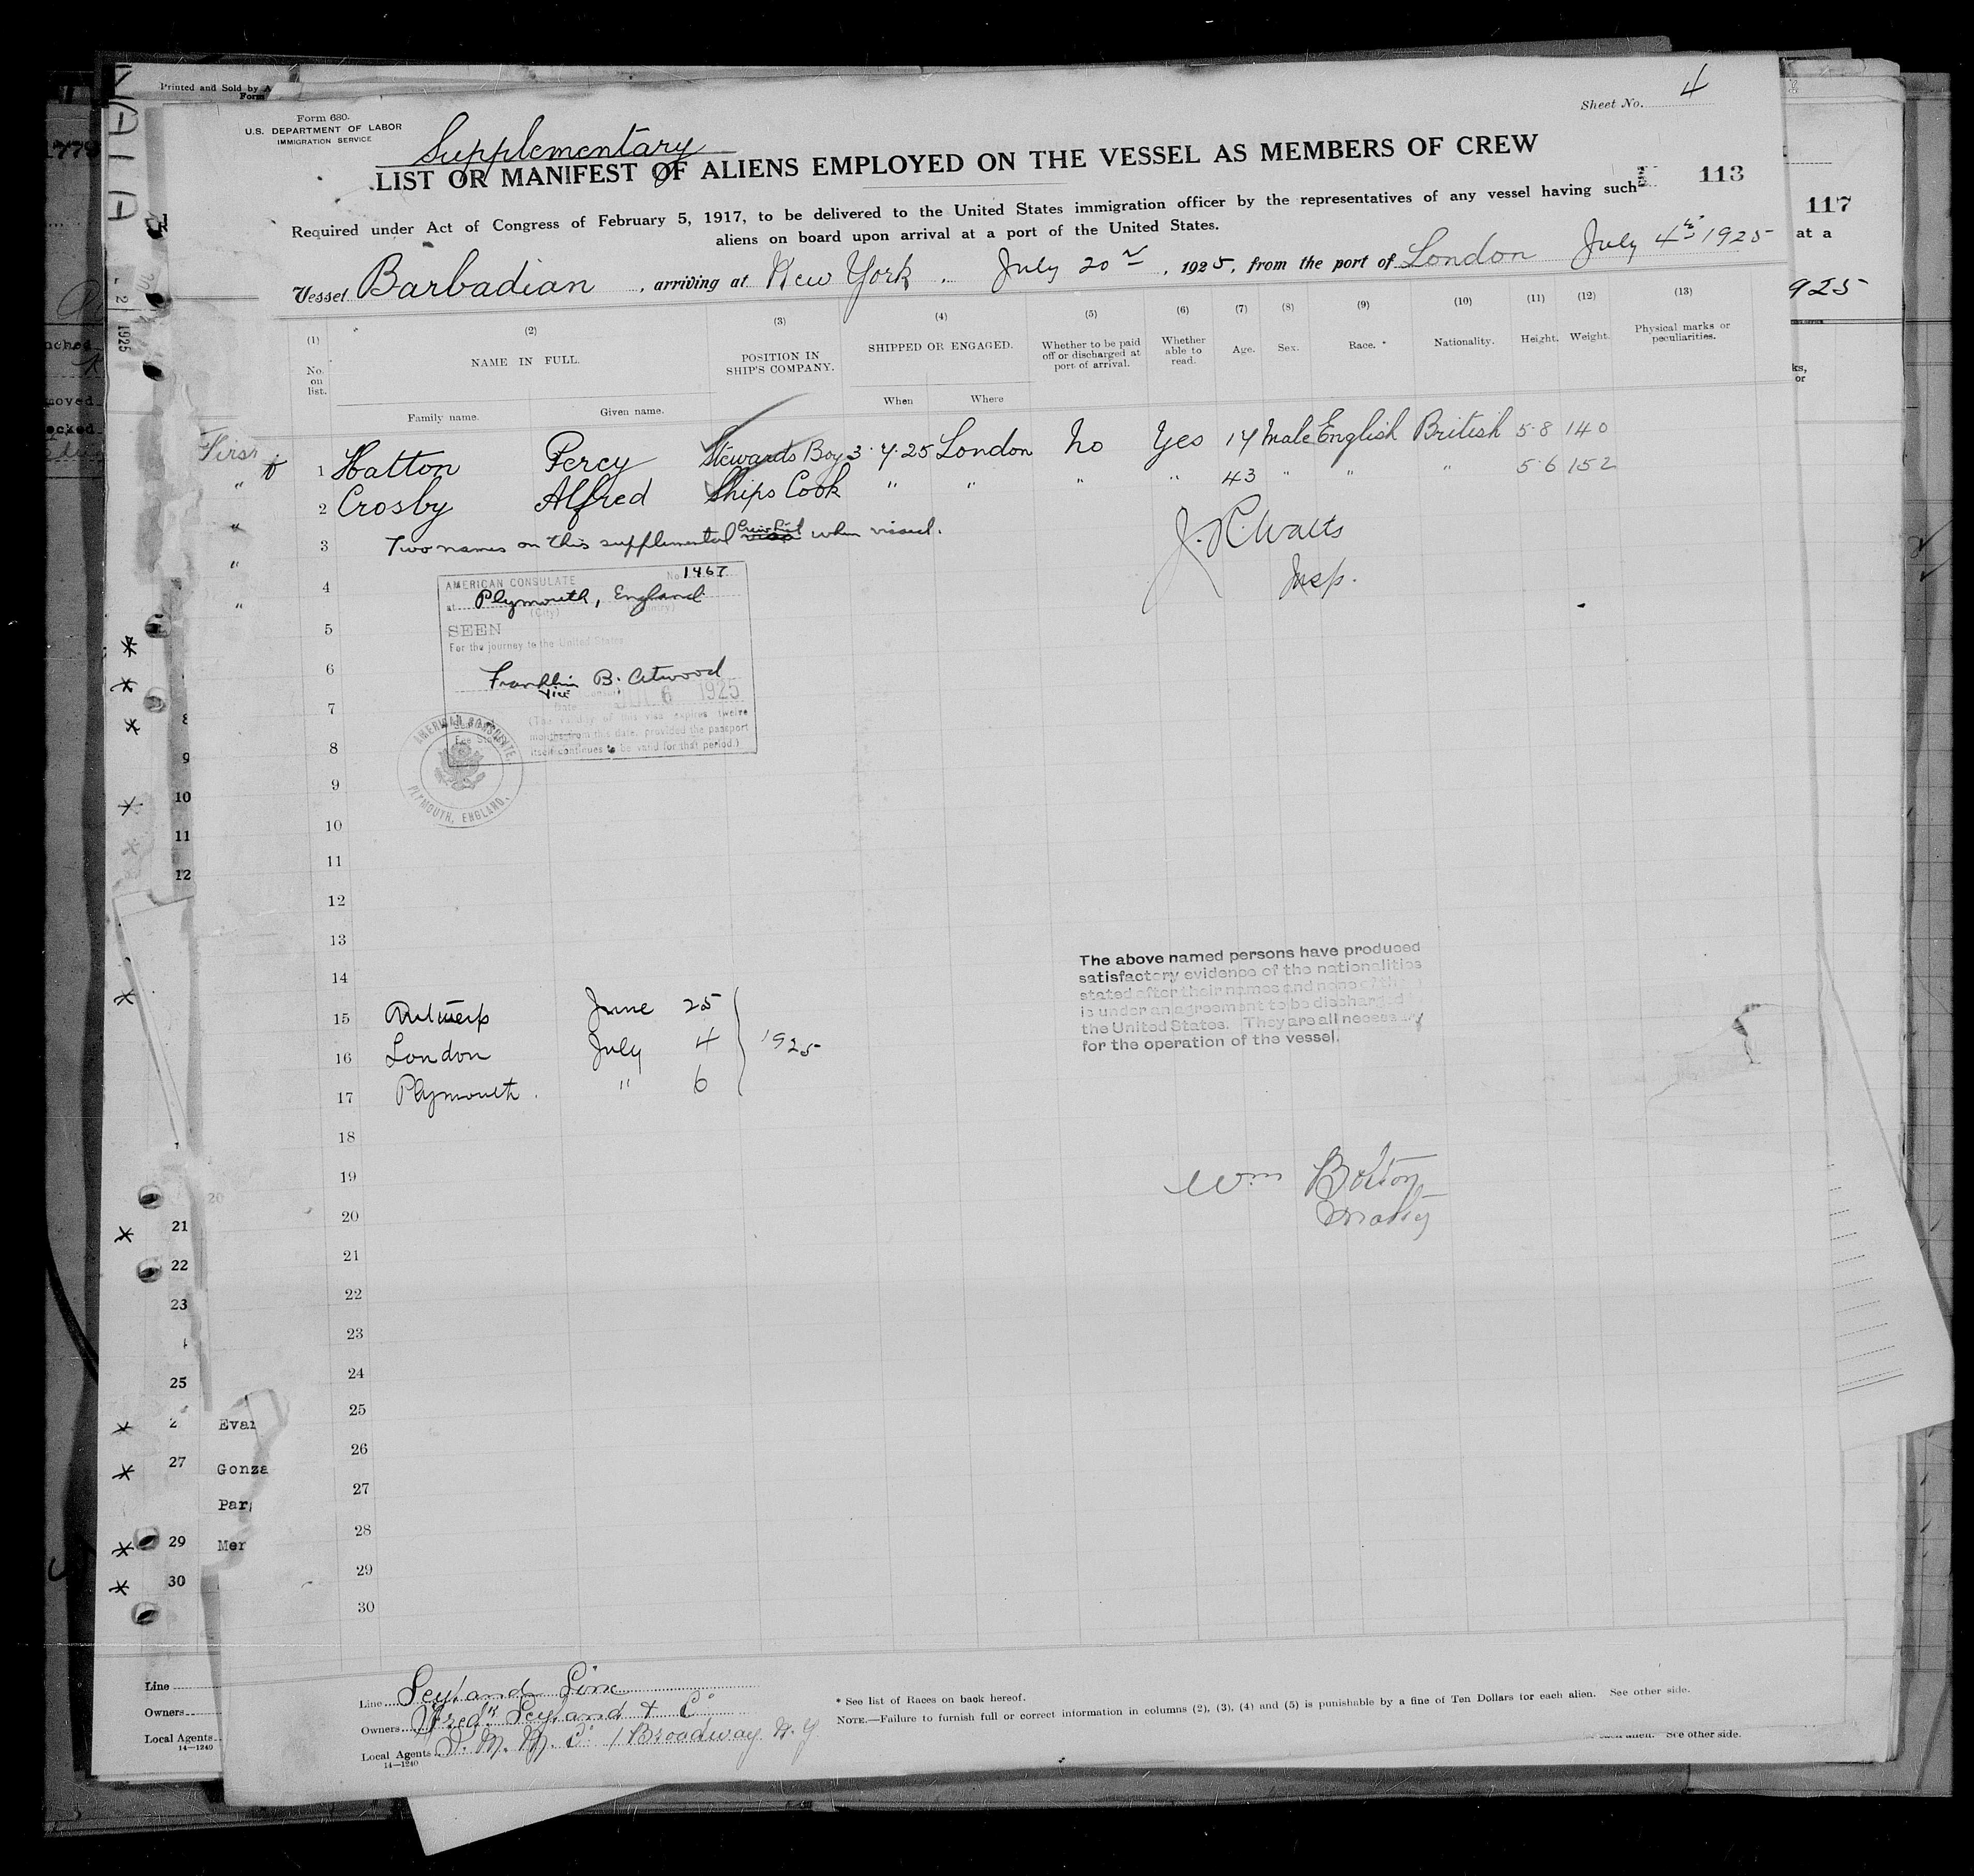 Printed and Sold by A
Form
Form 680.
U.S. DEPARTMENT OF LABOR
IMMIGRATION SERVICE
Sheet No. 4
Supplementary
LIST OR MANIFEST OF ALIENS EMPLOYED ON THE VESSEL AS MEMBERS OF CREW
113
117
Required under Act of Congress of February 5, 1917, to be delivered to the United States immigration officer by the representatives of any vessel having such
aliens on board upon arrival at a port of the United States.
at a
Vessel Barbadian, arriving at New York. July 20, 1925, from the port of London July 4th 1925
925
(1) (2) (3) (4) (5) (6) (7) (8) (9) (10) (11) (12) (13)
No. on list. NAME IN FULL. POSITION IN SHIP'S COMPANY. SHIPPED OR ENGAGED. Whether to be paid off or discharged at port of arrival. Whether able to read. Age. Sex. Race. * Nationality. Height. Weight. Physical marks or peculiarities.
Family name. Given name. When Where
First 1 Hatton Percy Stewards Boy 3.7.25 London No Yes 17 Male English British 5.8 140
" 2 Crosby Alfred Ships Cook " " " " 43 " " " 5.6 152
" 3 Two names on this supplemental Crew List when visaed.
J. R. Watts
Insp.
" 4
AMERICAN CONSULATE No. 1467
at Plymouth, England
(City) (Country)
" 5
SEEN
For the journey to the United States
6
Franklin B. Atwood
Vice Consul
7
Date JUL 6 1925
(The validity of this visa expires twelve
months from this date, provided the passport
itself continues to be valid for that period.)
8
AMERICAN CONSULATE
PLYMOUTH, ENGLAND.
9
10
11
12
13
14
The above named persons have produced
satisfactory evidence of the nationalities
stated after their names and none of them
is under an agreement to be discharged
the United States. They are all necessary
for the operation of the vessel.
15 Antwerp June 25
16 London July 4 1925
17 Plymouth. " 6
18
19 Wm Bolton
20 Master
21
22
23
24
25
26
27
28
29
30
8
9
10
11
12
20
21
22
23
25
Evan
27 Gonza
Par
29 Mer
30
Line Leyland Line
Owners Fredk Leyland & Co
Local Agents I. M. M. Co 1 Broadway N.Y
14—1240
* See list of Races on back hereof.
NOTE.—Failure to furnish full or correct information in columns (2), (3), (4) and (5) is punishable by a fine of Ten Dollars for each alien. See other side.
Line
Owners
Local Agents
14—1240
See other side.